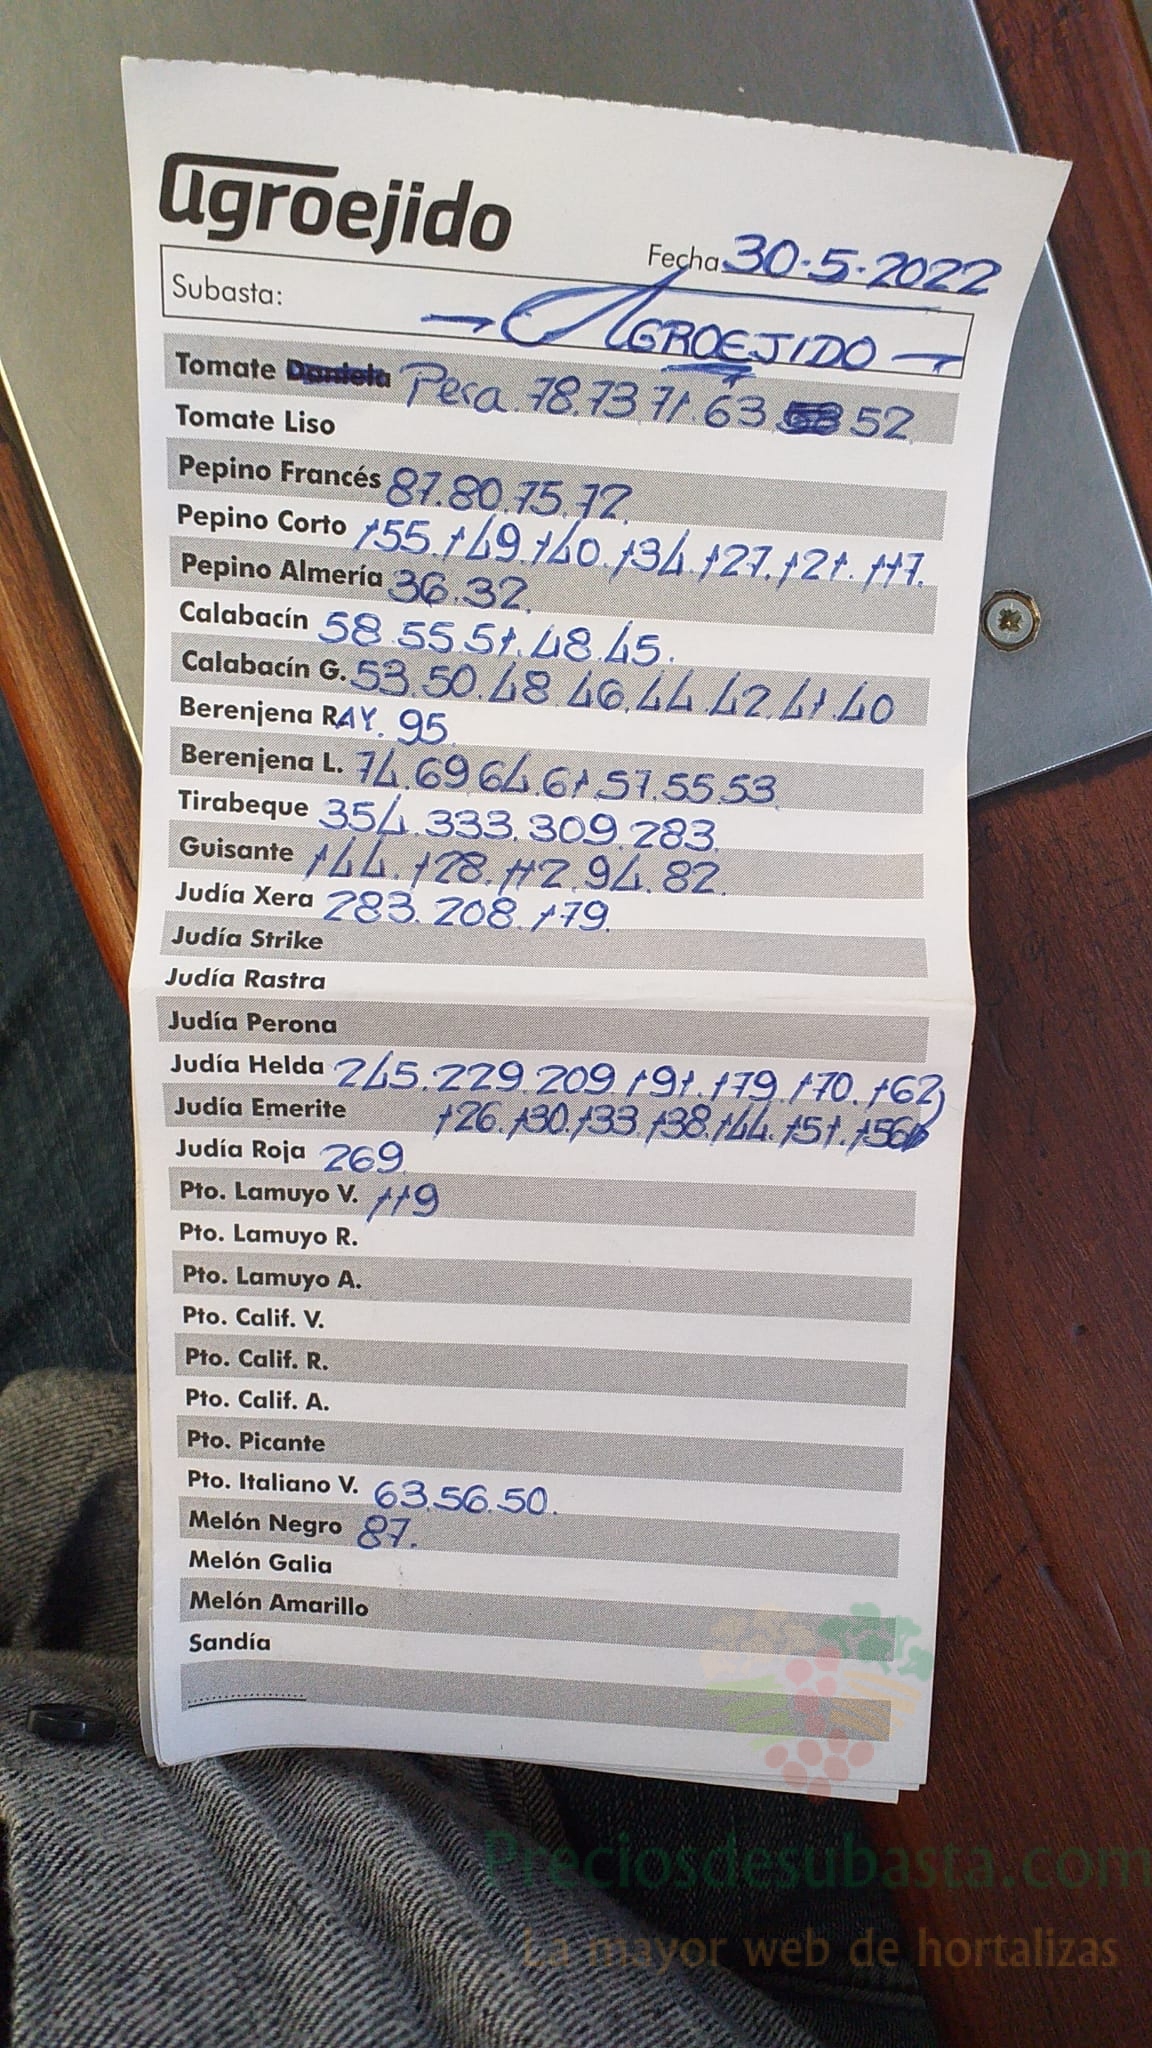 agroejido
Fecha 30-5-2022
Subasta: AGROEJIDO
Tomate Daniela Pera. 78.73 71.63 52
Tomate Liso
Pepino Francés 87.80.75.72.
Pepino Corto 155.149.140.134.127.121.117.
Pepino Almería 36.32.
Calabacín 58.55.51.48.45.
Calabacín G. 53.50.48.46.44.42.41.40
Berenjena RAY. 95.
Berenjena L. 74.69.64.61.57.55.53.
Tirabeque 354.333.309.283.
Guisante 144.128.112.94.82.
Judía Xera 283.208.179.
Judía Strike
Judía Rastra
Judía Perona
Judía Helda 245.229.209.191.179.170.162
Judía Emerite 126.130.133.138.144.151.156
Judía Roja 269.
Pto. Lamuyo V. 119
Pto. Lamuyo R.
Pto. Lamuyo A.
Pto. Calif. V.
Pto. Calif. R.
Pto. Calif. A.
Pto. Picante
Pto. Italiano V. 63.56.50.
Melón Negro 87.
Melón Galia
Melón Amarillo
Sandía
Preciosdesubasta.com
La mayor web de hortalizas